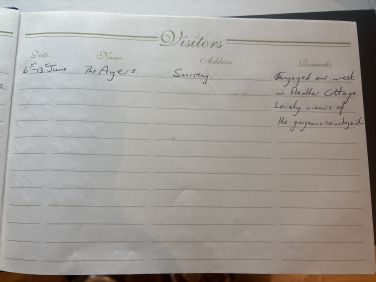 Visitors
Date Name Address Remarks
6th-13th June The Ayers Surrey Enjoyed our week
in Heather Cottage.
Lovely views of
the gorgeous countryside